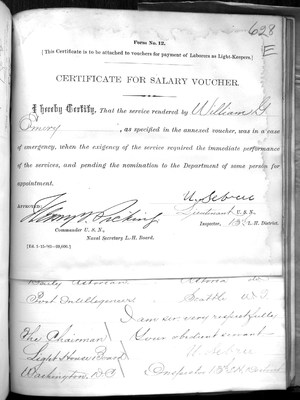 628
E
Form No. 12.
[This Certificate is to be attached to vouchers for payment of Laborers as Light-Keepers.]
CERTIFICATE FOR SALARY VOUCHER.
I hereby Certify, That the service rendered by William G
Emory, as specified in the annexed voucher, was in a case
of emergency, when the exigency of the service required the immediate performance
of the services, and pending the nomination to the Department of some person for
appointment.
APPROVED:
U. Sebree
Lieutenant U. S. N.,
Inspector, 13th L. H. District.
Commander U. S. N.,
Naval Secretary L. H. Board.
Daily Astorian Astoria
Post Intelligencer Seattle W.T.
I am sir very respectfully
The Chairman Your obedient servant
Light House Board U. Sebree
Washington D.C. Inspector 13th L.H. District